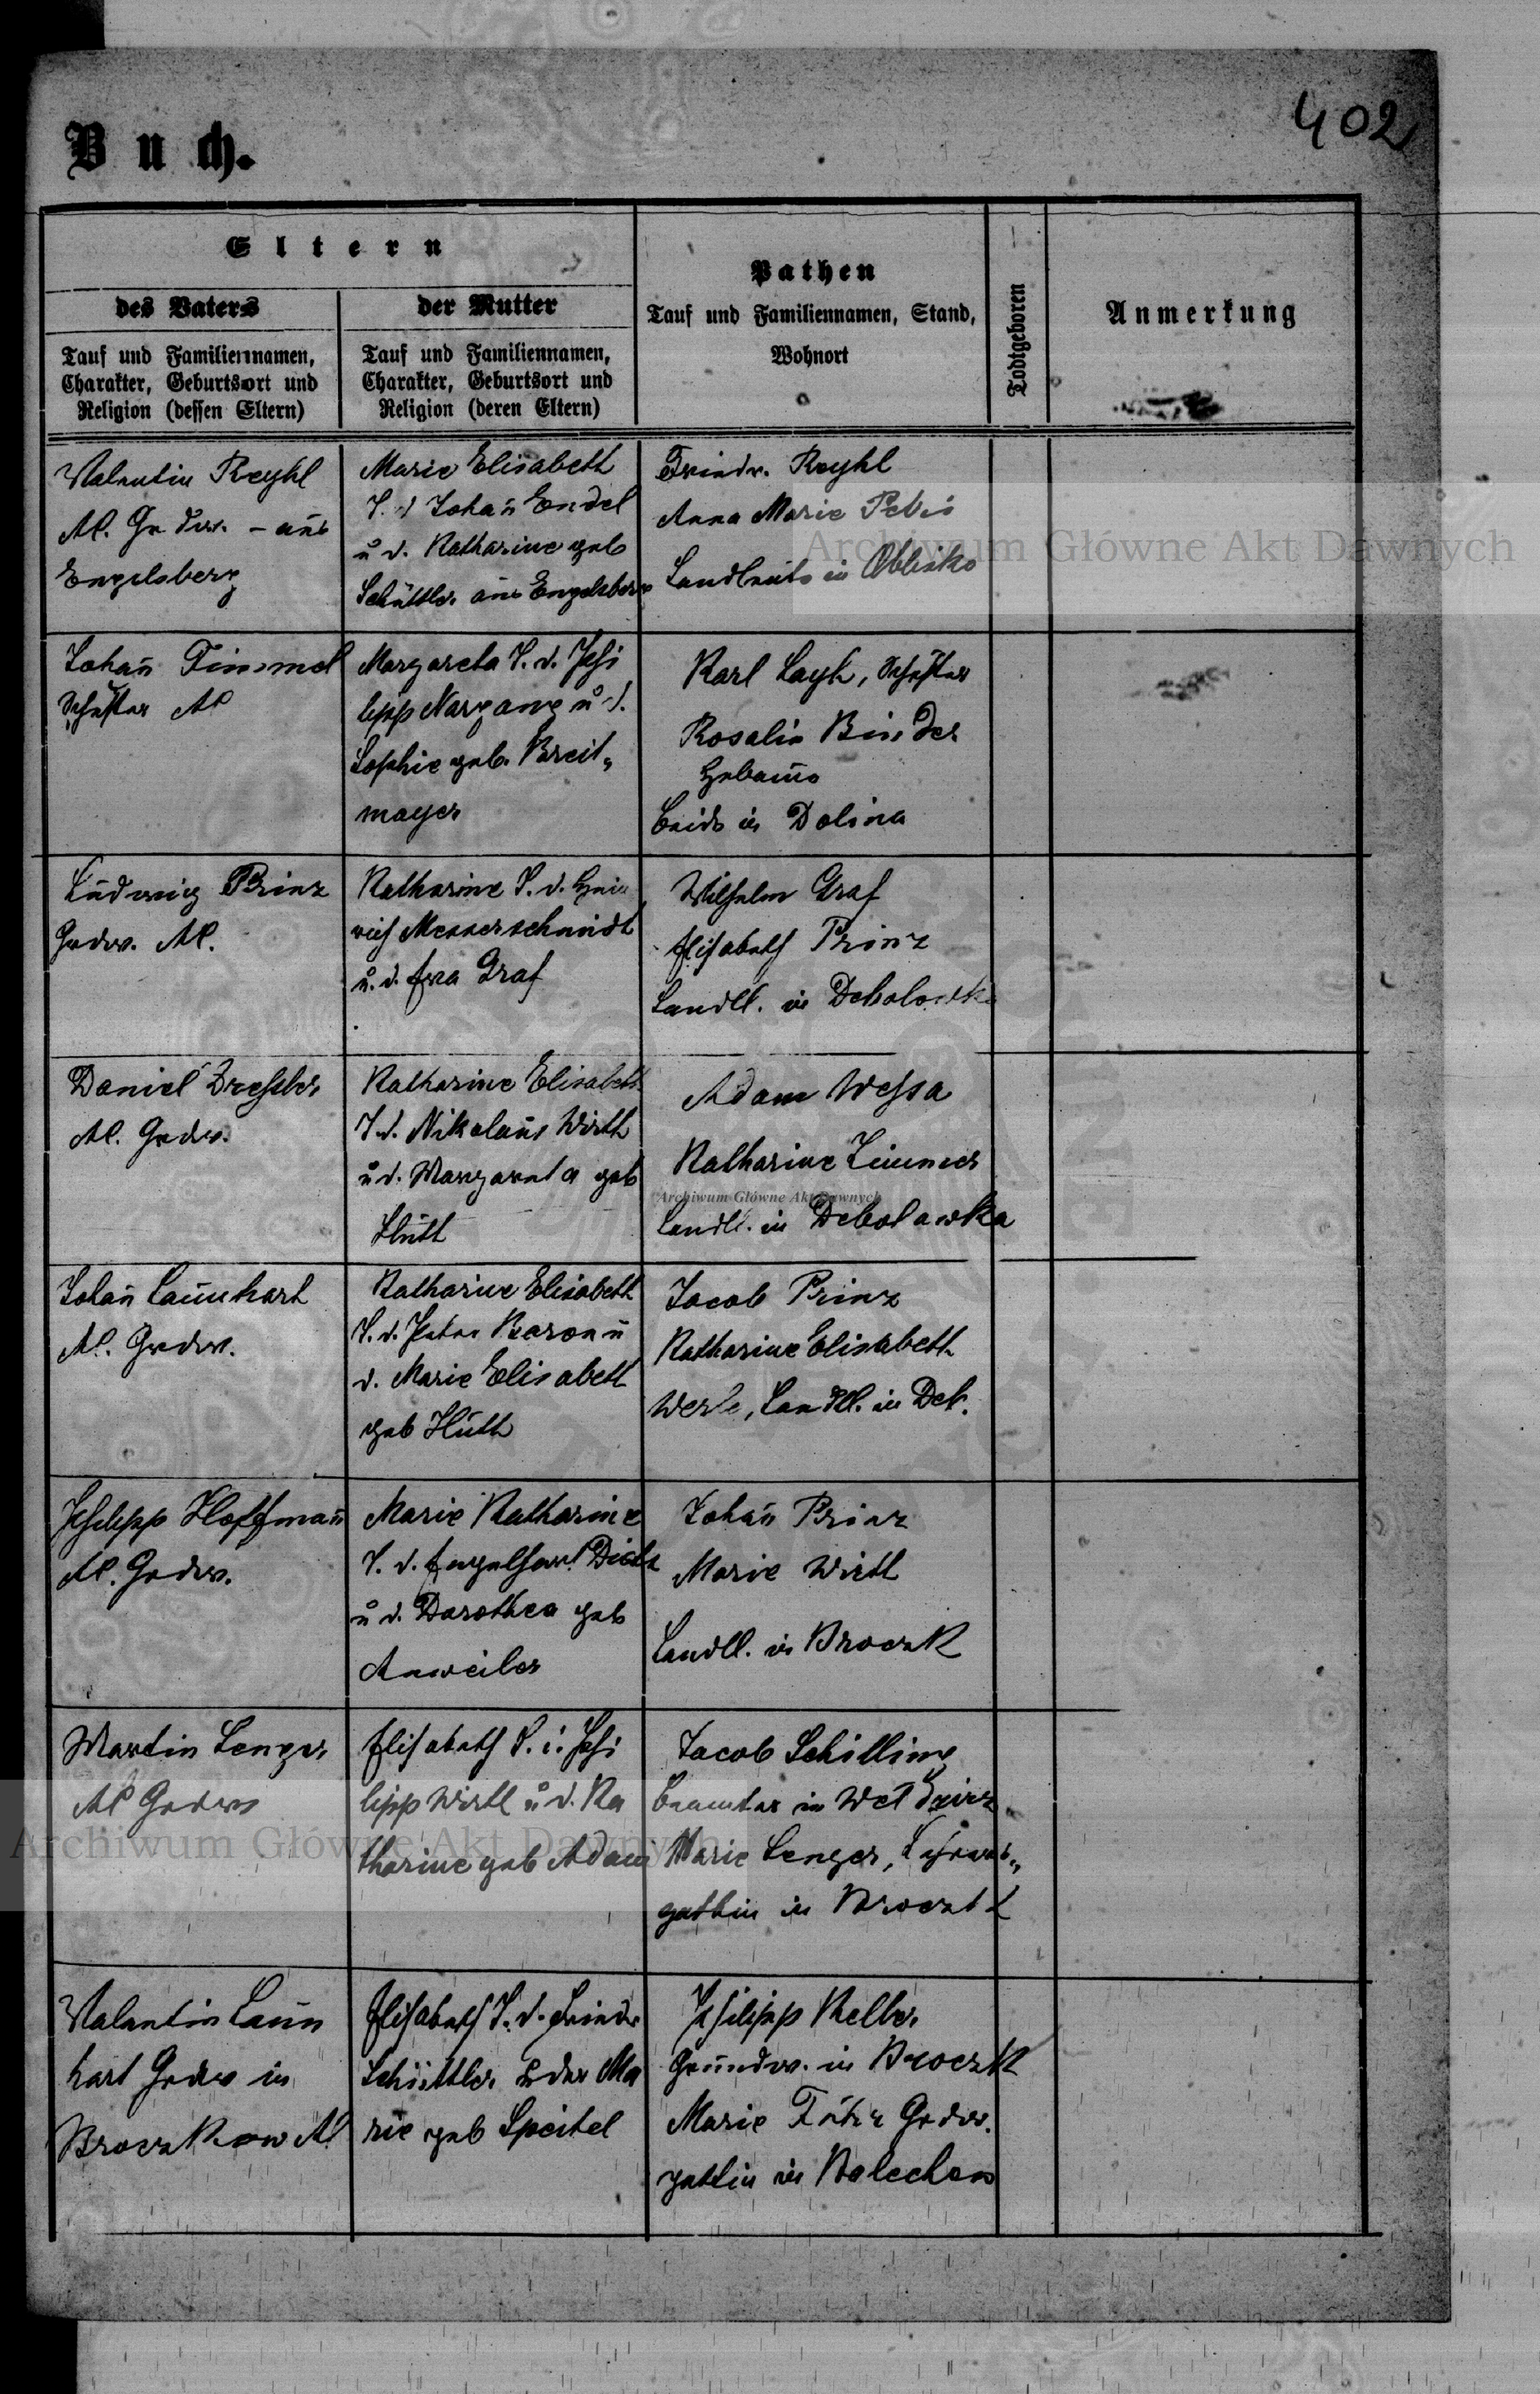 402
Buch.
Eltern
des Vaters
Tauf und Familiennamen,
Charakter, Geburtsort und
Religion (dessen Eltern)
der Mutter
Tauf und Familiennamen,
Charakter, Geburtsort und
Religion (deren Eltern)
Pathen
Tauf und Familiennamen, Stand,
Wohnort
Todtgeboren
Anmerkung
Valentin Reykl
AC. Grdw. - aus
Engelsberg
Marie Elisabeth
T. d Johañ Endel
u d. Katharine geb
Schüttler aus Engelsberg
Friedr. Reykl
Anna Marie Petri
Landleute in Oblisko
Johañ Timmel
Schuster AC
Margareta T. d. Phi
lipp Nargang u d.
Sophie geb. Breit„
mayer
Karl Layh, Schuster
Rosalia Binder
Hebame
beide in Dolina
Ludwig Prinz
Grdw. AC.
Katharine T. d. Hein
rich Messerschmidt
u. d. Eva Graf
Wilhelm Graf
Elisabeth Prinz
Landll. in Debolowka
Daniel Dressler
AC. Grdw.
Katharine Elisabeth
T. d. Nikolaus Wirth
u d. Margareta geb
Huth
Adam Wessa
Katharine Zimmer
Landll. in Debolawka
Johañ Launhart
AC. Grdw.
Katharine Elisabeth
T. d. Peter Baron u
d. Marie Elisabeth
geb Huth
Jacob Prinz
Katharine Elisabeth
Werle, Landll. in Deb.
Philipp Hoffmañ
AC. Grdw.
Marie Katharine
T. d. Engelhart Diets
u d. Dorothea geb
Anweiler
Johañ Prinz
Marie Wirth
Landll. in Broczk
Martin Lenger
AC Grdw
Elisabeth T. d. Phi
lipp Wirth u d. Ka
tharine geb Adam
Jacob Schilling
Beamter in
Marie Lenger,
gattin in Broczk
Valentin Laun
hart Grdw in
Broczkow AC
Elisabeth T. d. Friedr
Schüttler u der Ma
rie geb Speitel
Philipp Kelber
Grundw. in Broczk
Marie Grdw.
gattin in Bolechow
Archiwum Główne Akt Dawnych
Archiwum Główne Akt Dawnych
Archiwum Główne Akt Dawnych